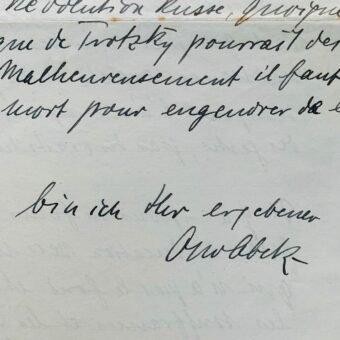 Révolution Russe, quoique
que de Trotzky pourrait de
Malheureusement il faut
mort pour engendrer de
bin ich Ihr ergebener